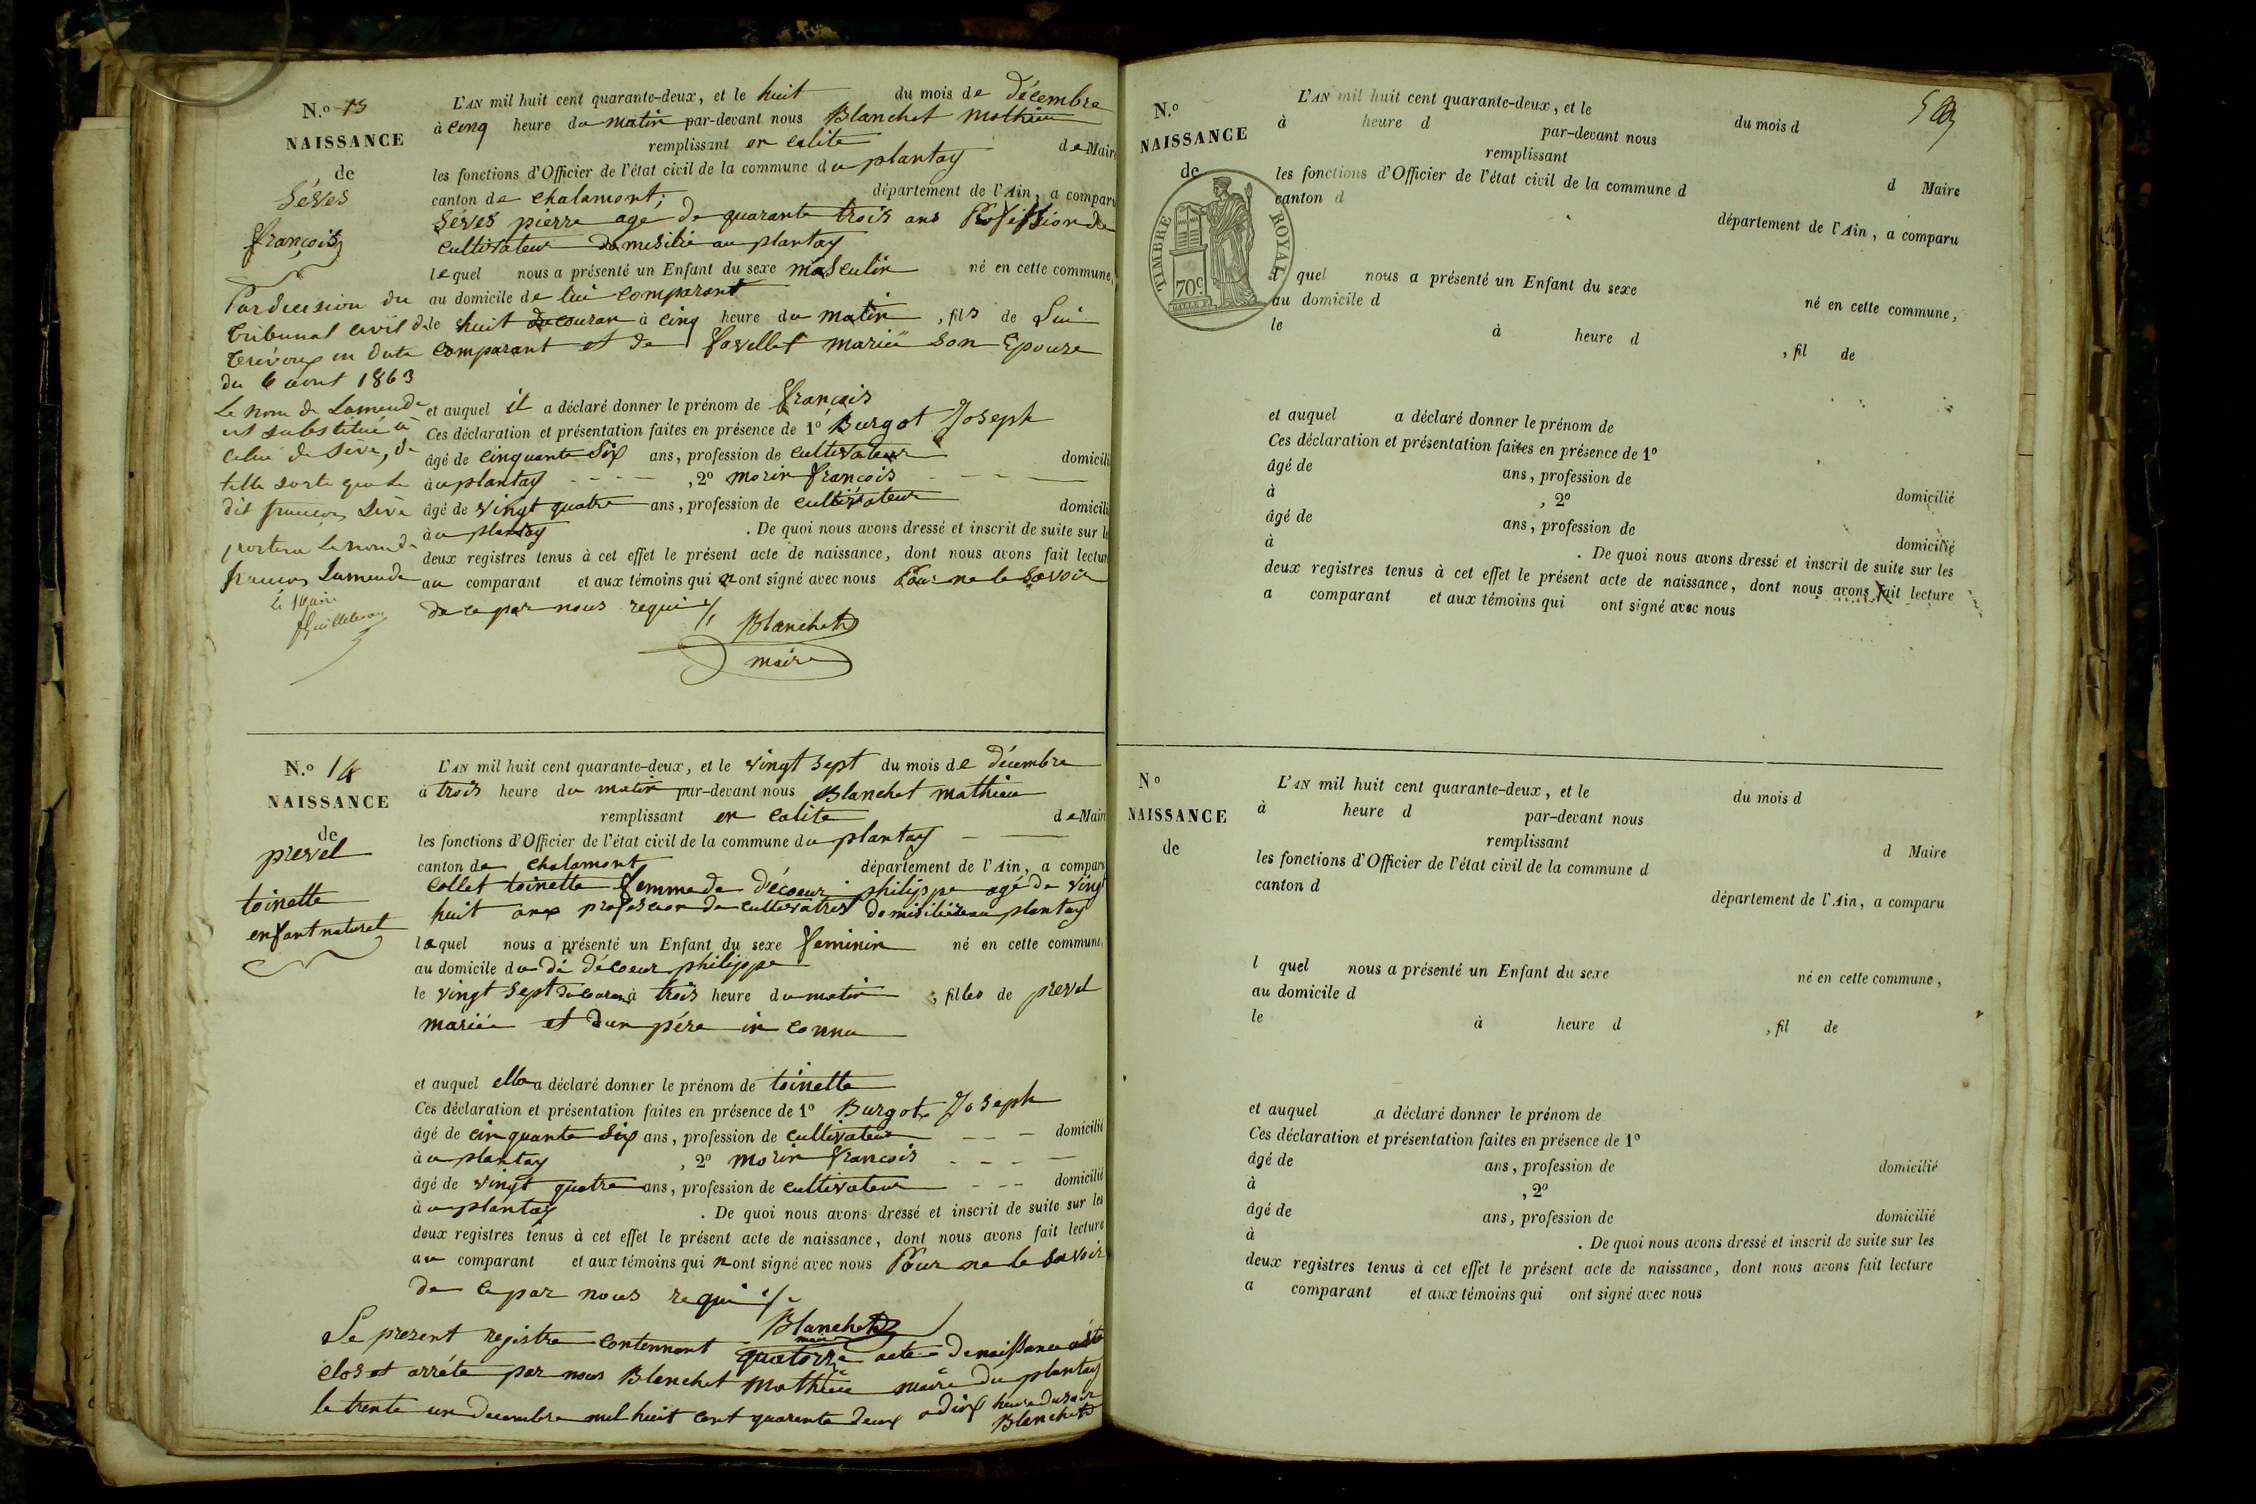 N.º 13
NAISSANCE
de
Séves
françois
Par decision du
tribunal civil de
trévoux en date
du 6 aout 1863
Le nom de Lamende
est substitué à
celui de Sève, de
telle sorte que le
dit francois Sève
portera le nom de
francois Lamende
le Maire
L'AN mil huit cent quarante-deux, et le huit du mois de décembre
à cinq heure du matin par-devant nous Blanchet mathieu
remplissant en calite de Maire
les fonctions d'Officier de l'état civil de la commune du plantay
canton de chalamont; département de l'Ain, a comparu
Séves pierre age de quarante trois ans Profession de
cultivateur domisilié au plantay
lequel nous a présenté un Enfant du sexe masculin né en cette commune,
au domicile de lui comparant
le huit du couran à cinq heure du matin, fils de Lui
comparant et de favellet mariée son Epouze
et auquel il a déclaré donner le prénom de françois
Ces déclaration et présentation faites en présence de 1º Burgot Joseph
âgé de cinquante six ans, profession de cultivateur domicilié
à au plantay , 2º morin françois
âgé de vingt quatre ans, profession de cultivateur domicilié
à au plantay . De quoi nous avons dressé et inscrit de suite sur les
deux registres tenus à cet effet le présent acte de naissance, dont nous avons fait lecture
au comparant et aux témoins qui n ont signé avec nous Pour ne le savoir
de ce par nous requis
Blanchet
maire
N.º 14
NAISSANCE
de
prevel
toinette
enfant naturel
L'AN mil huit cent quarante-deux, et le vingt sept du mois de décembre
à trois heure du matin par-devant nous Blanchet mathieu
remplissant en calite de Maire
les fonctions d'Officier de l'état civil de la commune du plantay
canton de chalamont département de l'Ain, a comparu
collet toinette femme de décoeur philippe agé de vingt
huit ans profession de cultivatrice domisiliée au plantay
laquel nous a présenté un Enfant du sexe feminin né en cette commune,
au domicile du di décoeur philippe
le vingt sept du couran à trois heure du matin , filles de prevel
mariée et dun pére in connu
et auquel elle a déclaré donner le prénom de toinette
Ces déclaration et présentation faites en présence de 1º Burgot Joseph
âgé de cinquante six ans, profession de cultivateur domicilié
à au plantay , 2º morin francois
âgé de vingt quatre ans, profession de cultivateur domicilié
à au plantay . De quoi nous avons dressé et inscrit de suite sur les
deux registres tenus à cet effet le présent acte de naissance, dont nous avons fait lecture
au comparant et aux témoins qui n ont signé avec nous Pour ne le savoir
de ce par nous requis
Blanchet
maire
Le present registre contennant quatorze acte de naissance a été
clos et arréte par nous Blanchet Mathieu maire du plantay
le trente un decembre mil huit cent quarente deux a dix heure du soir
Blanchet
N.º
NAISSANCE
de
TIMBRE ROYAL
70 c.
L'AN mil huit cent quarante-deux, et le du mois d
à heure d par-devant nous
remplissant d Maire
les fonctions d'Officier de l'état civil de la commune d
canton d département de l'Ain, a comparu
l quel nous a présenté un Enfant du sexe né en cette commune,
au domicile d
le à heure d , fil de
et auquel a déclaré donner le prénom de
Ces déclaration et présentation faites en présence de 1º
âgé de ans, profession de domicilié
à , 2º
âgé de ans, profession de domicilié
à . De quoi nous avons dressé et inscrit de suite sur les
deux registres tenus à cet effet le présent acte de naissance, dont nous avons fait lecture
a comparant et aux témoins qui ont signé avec nous
Nº
NAISSANCE
de
L'AN mil huit cent quarante-deux, et le du mois d
à heure d par-devant nous
remplissant d Maire
les fonctions d'Officier de l'état civil de la commune d
canton d département de l'Ain, a comparu
l quel nous a présenté un Enfant du sexe né en cette commune,
au domicile d
le à heure d , fil de
et auquel a déclaré donner le prénom de
Ces déclaration et présentation faites en présence de 1º
âgé de ans, profession de domicilié
à , 2º
âgé de ans, profession de domicilié
à . De quoi nous avons dressé et inscrit de suite sur les
deux registres tenus à cet effet le présent acte de naissance, dont nous avons fait lecture
a comparant et aux témoins qui ont signé avec nous